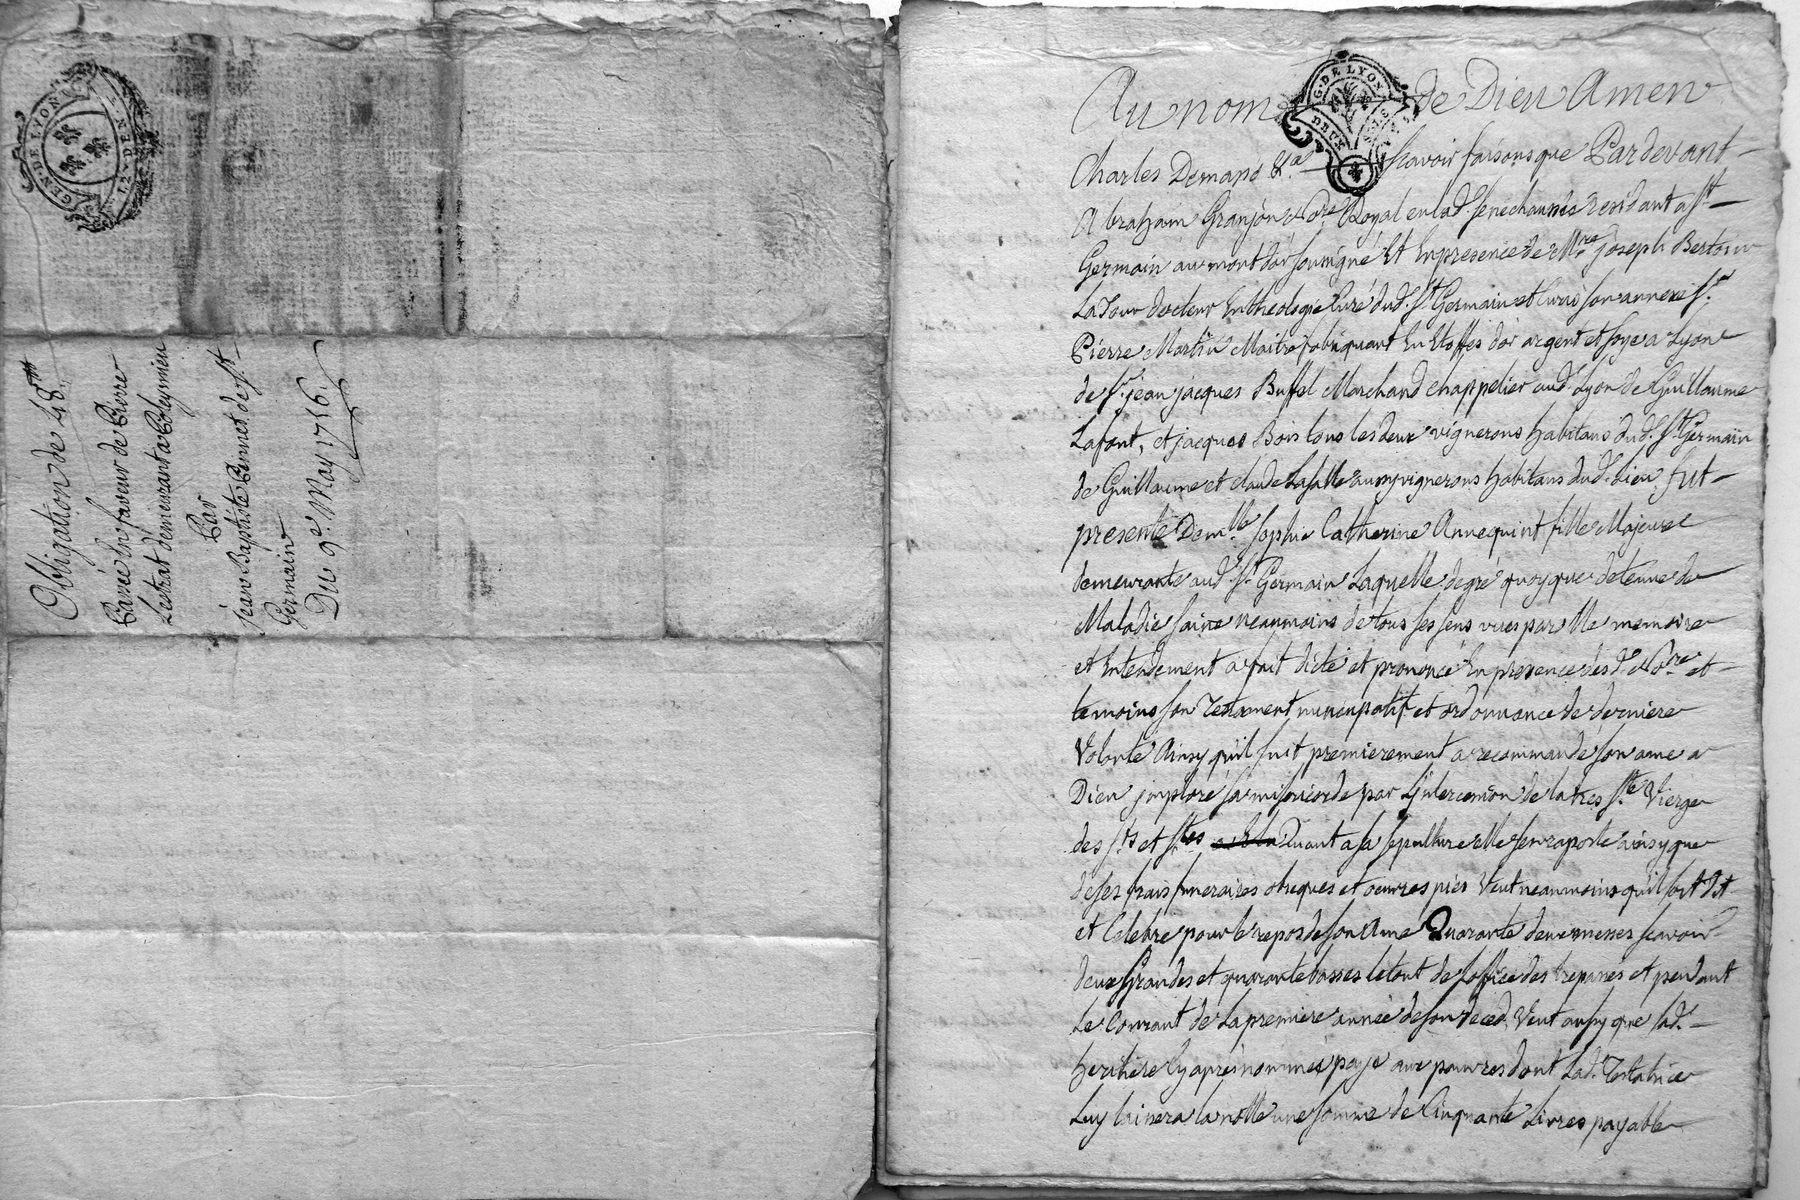 GEN. DE LYON
12. DEN.
Obligation de 48tt
Passée En faveur de Pierre
Lestrat demeurant a Poleymieu
Par
jean Baptiste Ponnet de St
Germain
Du 9e. May 1716.
G. DE LYON
DEUX SOLS
Au nom de Dieu Amen
Charles Demano &.a scavoir faisons que Pardevant
Abraham Granjon Nore Royal en lad. senechaussée residant a St
Germain au mont d'or soussigné Et En presence de Mre joseph
La Tour docteur En theologie Curé dud. St Germain et son annexe Sr.
Pierre Martin Maitre fabriquant En Etoffes d'or argent et soye a Lyon
de Sr. jean jacques Buffel Marchand chappelier aud. Lyon de Guillaume
Lafont, et jacques Bois tous les deux vignerons habitans dud. St Germain
de Guillaume et claude Lasalle aussy vignerons habitans dud. Lieu fut
presente Demlle Sophie Catherine Annequint fille Majeure
demeurante aud. St Germain Laquelle de gré quoyque detenue de
Maladie saine neanmoins de tous ses sens vues parolle memoire
et Entendement a fait dicté et prononcé En presence desd. Nore et
temoins son Testament nuncupatif et ordonnance de derniere
Volonté Ainsy qu'il suit premierement a recommandé son ame a
Dieu jmploré sa misericorde par L'jntercession de la tres Ste Vierge
des Sts et Stes Quant a sa sepulture elle s'en raporte ainsy que
de ses frais funeraires obseques et oeuvres pies Veut neanmoins qu'il soit dit
et Celebré pour le repos de son Ame Quarante deux messes scavoir
deux Grandes et quarante basses le tout de l'office des trepassés et pendant
Le Courant de la premiere année de son deced Veut aussy que sad.
heritiere Cy apres nommée paye aux pauvres dont Lad. Testatrice
Luy laissera la notte une somme de Cinquante Livres payable